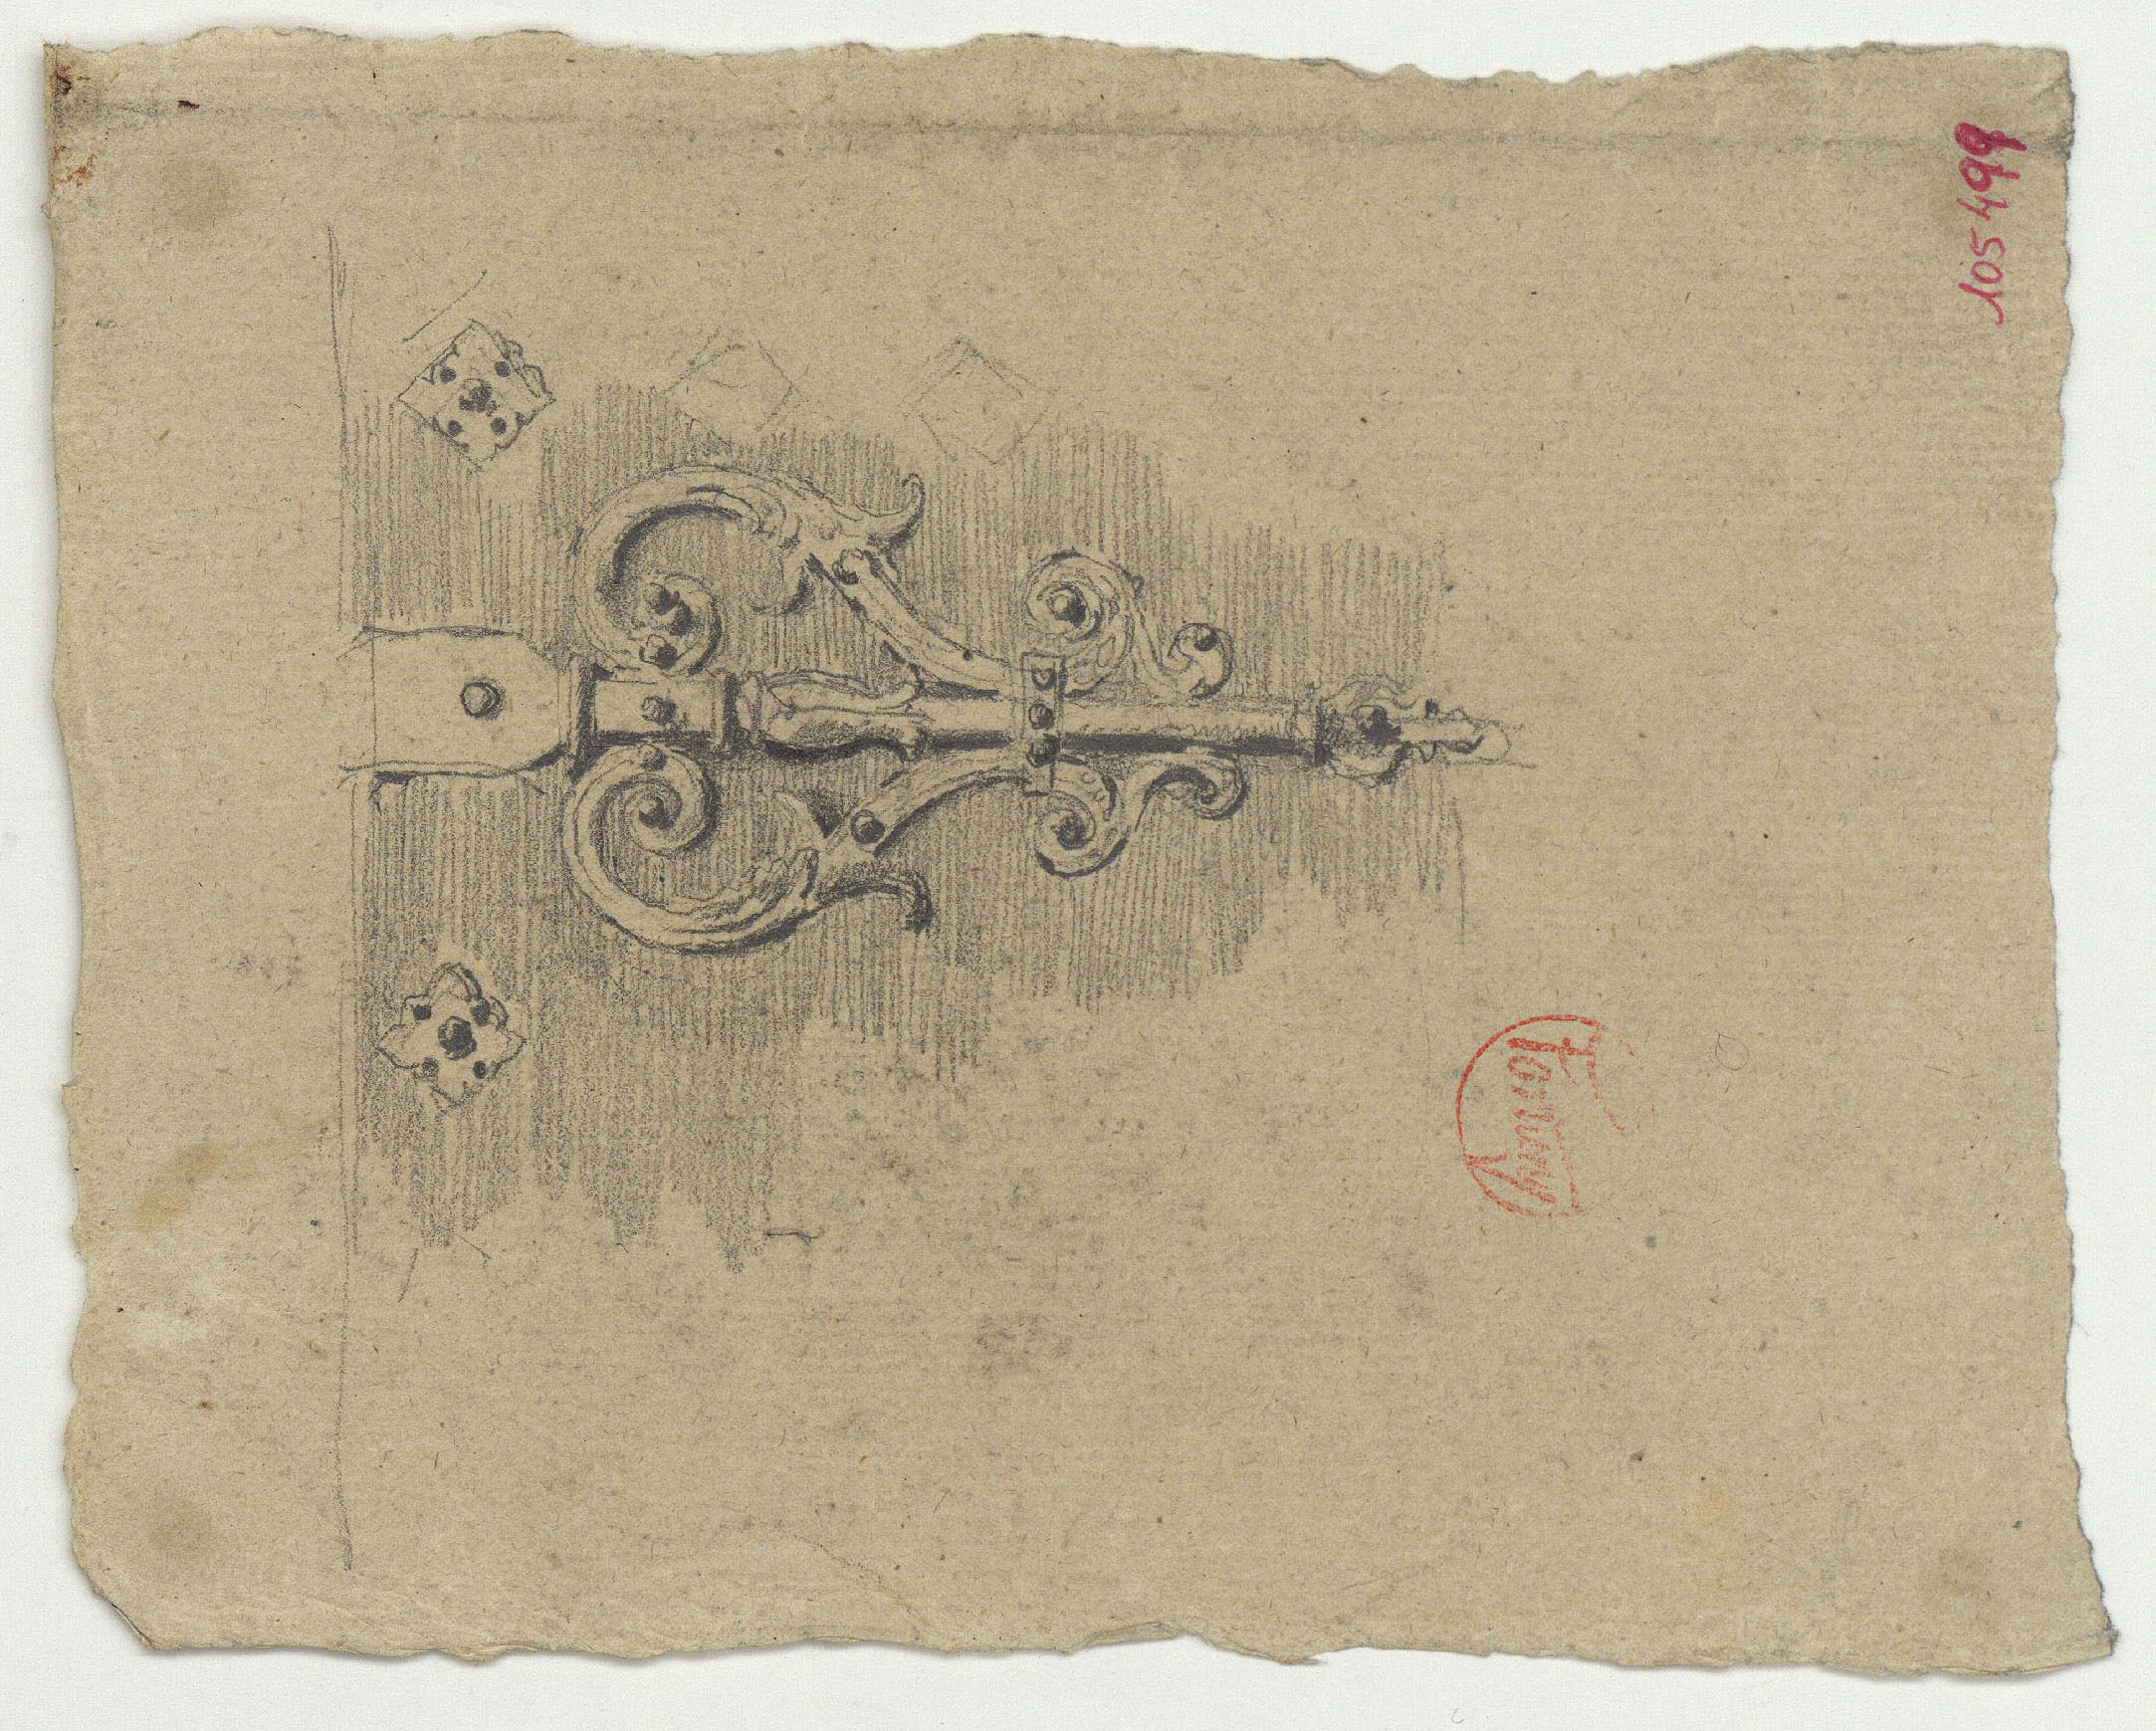 105499
Fortuny